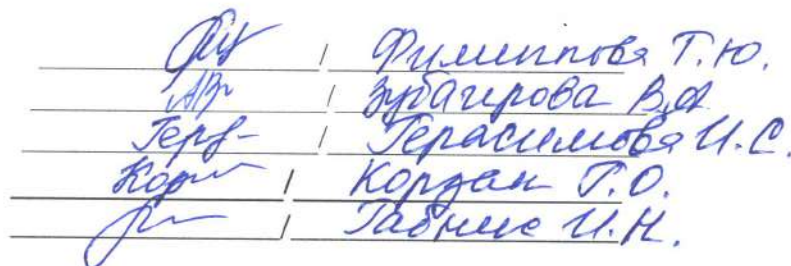 / Филиппова Т.Ю.
/ Зубагирова В.А
Гер / Герасимова И.С.
Кор / Корзан Г.О.
/ И.Н.